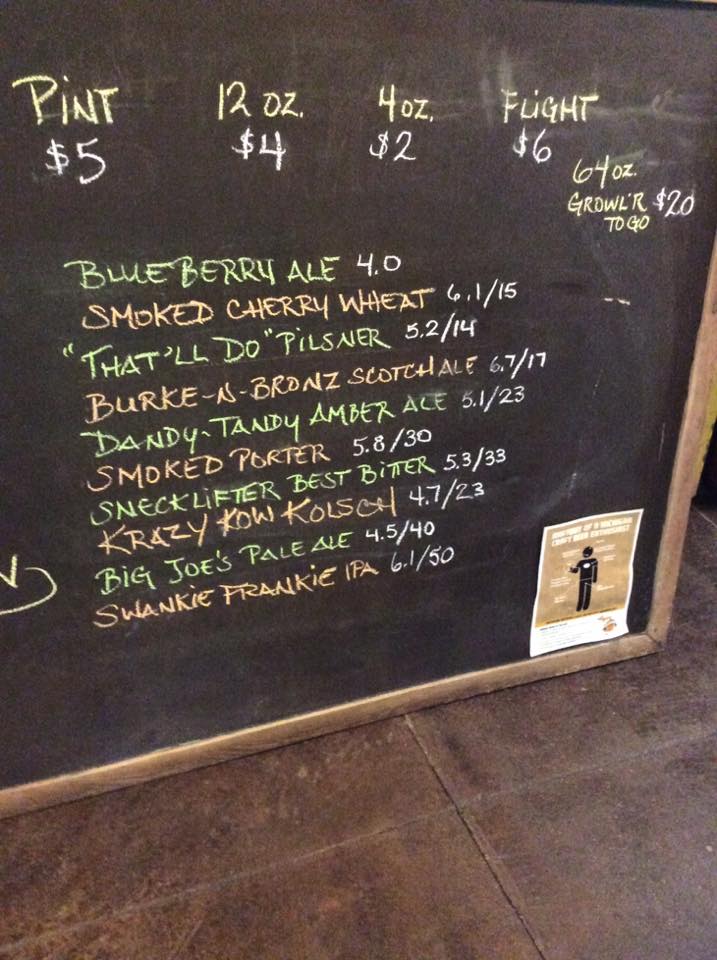 PINT 12 OZ. 4 OZ. FLIGHT
$5 $4 $2 $6
64 OZ.
GROWL'R $20
TO GO
BLUEBERRY ALE 4.0
SMOKED CHERRY WHEAT 6.1/15
"THAT'LL DO" PILSNER 5.2/14
BURKE-N-BRONZ SCOTCH ALE 6.7/17
DANDY-TANDY AMBER ALE 5.1/23
SMOKED PORTER 5.8/30
SNECKLIFTER BEST BITTER 5.3/33
KRAZY KOW KOLSCH 4.7/23
BIG JOE'S PALE ALE 4.5/40
SWANKIE FRANKIE IPA 6.1/50
ANATOMY OF A MICHIGAN
CRAFT BEER ENTHUSIAST